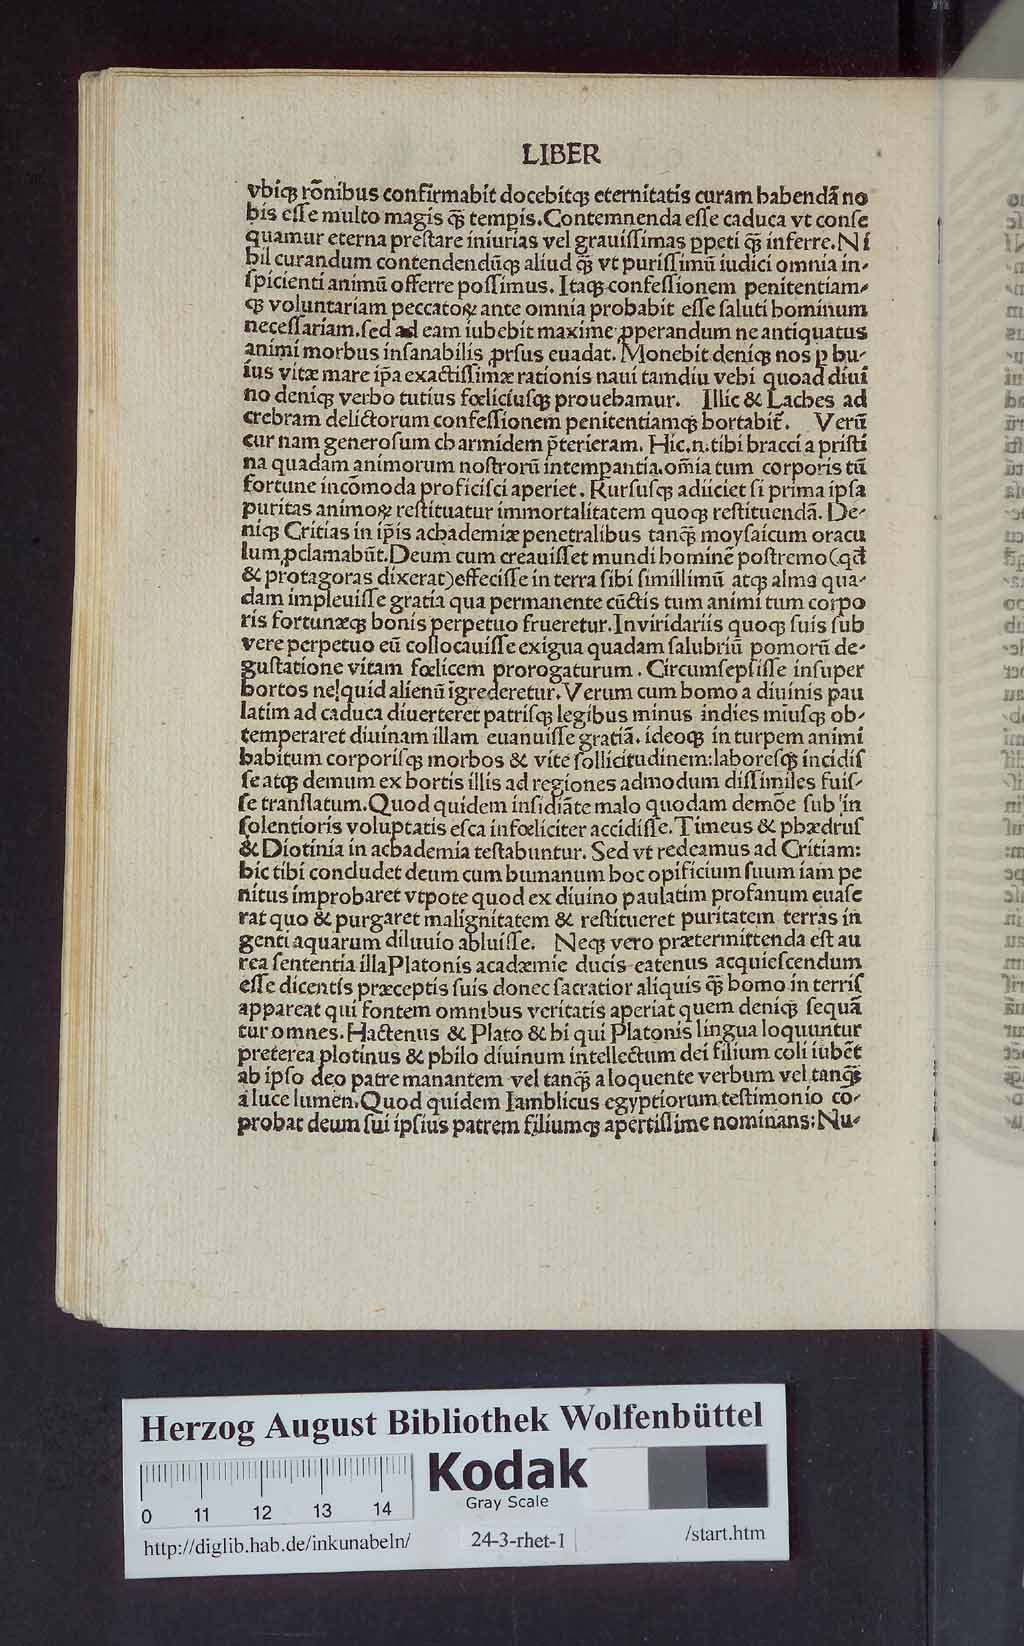 LIBER
vbiqꝫ rōnibus confirmabit docebitqꝫ eternitatis curam habendā no
bis eſſe multo magis qꝫ̄ tempis. Contemnenda eſſe caduca vt conſe
quamur eterna preſtare iniurias vel grauiſſimas ꝑpeti qꝫ̄ inferre. Ni
hil curandum contendendūqꝫ aliud qꝫ̄ vt puriſſimū iudici omnia in-
ſpicienti animū offerre poſſimus. Itaqꝫ confeſſionem penitentiam-
qꝫ voluntariam peccatoꝝ ante omnia probabit eſſe ſaluti hominum
neceſſariam. ſed ad eam iubebit maxime ꝓperandum ne antiquatus
animi morbus inſanabilis ꝓrſus euadat. Monebit deniqꝫ nos ꝑ hu-
ius vitæ mare ip̄a exactiſſimæ rationis naui tamdiu vehi quoad diui
no deniqꝫ verbo tutius fœliciuſqꝫ prouehamur. Illic & Laches ad
crebram delictorum confeſſionem penitentiamqꝫ hortabit᷑. Verū
cur nam generoſum charmidem p̄terieram. Hic.n.tibi bracci a priſti
na quadam animorum noſtrorū intempantia.om̄ia tum corporis tū
fortune incōmoda proficiſci aperiet. Rurſuſqꝫ adiiciet ſi prima ipſa
puritas animoꝝ reſtituatur immortalitatem quoqꝫ reſtituendā. De-
niqꝫ Critias in ip̄is achademiæ penetralibus tanqꝫ̄ moyſaicum oracu
lum ꝓclamabūt. Deum cum creauiſſet mundi hominē poſtremo (qd̄
& protagoras dixerat) effeciſſe in terra ſibi ſimillimū atqꝫ alma qua-
dam impleuiſſe gratia qua permanente cūctis tum animi tum corpo
ris fortunæqꝫ bonis perpetuo frueretur. In viridariis quoqꝫ ſuis ſub
vere perpetuo eū collocauiſſe exigua quadam ſalubriū pomorū de-
guſtatione vitam fœlicem prorogaturum. Circumſepſiſſe inſuper
hortos ne quid alienū īgrederetur. Verum cum homo a diuinis pau
latim ad caduca diuerteret patriſqꝫ legibus minus indies miuſqꝫ ob-
temperaret diuinam illam euanuiſſe gratiā. ideoqꝫ in turpem animi
habitum corporiſqꝫ morbos & vite ſollicitudinem: laboreſqꝫ incidiſ
ſe atqꝫ demum ex hortis illis ad regiones admodum diſſimiles fuiſ-
ſe tranſlatum. Quod quidem inſidiāte malo quodam demōe ſub in
ſolentioris voluptatis eſca infœliciter accidiſſe. Timeus & phædruſ
& Diotinia in achademia teſtabuntur. Sed vt redeamus ad Critiam:
hic tibi concludet deum cum humanum hoc opificium ſuum iam pe
nitus improbaret vtpote quod ex diuino paulatim profanum euaſe
rat quo & purgaret malignitatem & reſtitueret puritatem terras in
genti aquarum diluuio abluiſſe. Neqꝫ vero prætermittenda eſt au
rea ſententia illa Platonis acadæmie ducis eatenus acquieſcendum
eſſe dicentis præceptis ſuis donec ſacratior aliquis qꝫ̄ homo in terriſ
appareat qui fontem omnibus veritatis aperiat quem deniqꝫ ſequā
tur omnes. Hactenus & Plato & hi qui Platonis lingua loquuntur
preterea plotinus & philo diuinum intellectum dei filium coli iubēt
ab ipſo deo patre manantem vel tanqꝫ̄ a loquente verbum vel tanqꝫ̄
a luce lumen. Quod quidem Iamblicus egyptiorum teſtimonio co-
probat deum ſui ipſius patrem filiumqꝫ apertiſſime nominans: Nu-
Herzog August Bibliothek Wolfenbüttel
Kodak
Gray Scale
0 11 12 13 14
http://diglib.hab.de/inkunabeln/ 24-3-rhet-1 /start.htm